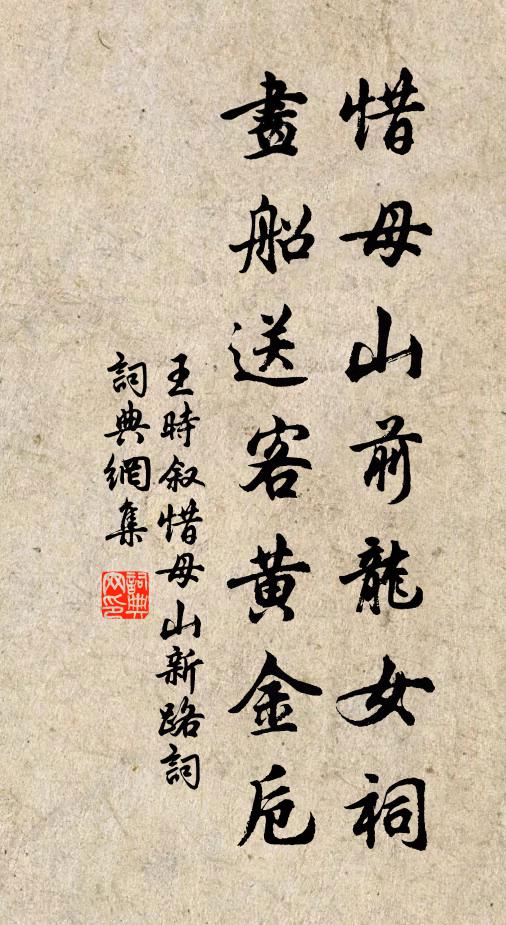 惜母山前龍女祠
畫船送客黃金卮
王時叙惜母山新路詞
詞典網集
詞典網印